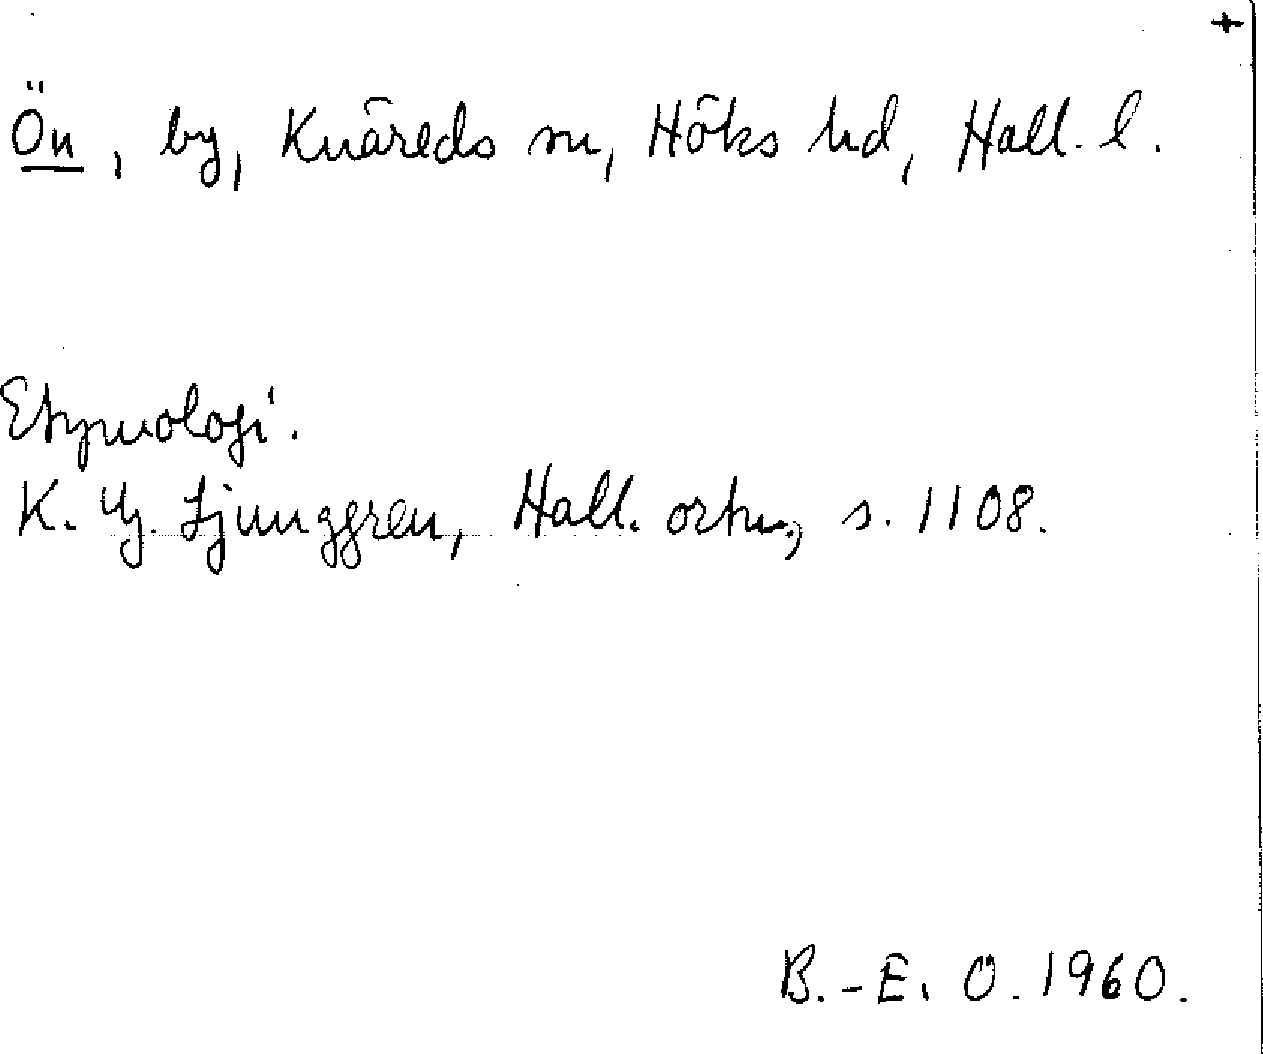 +
Ön, by, Knäreds sn, Höks hd, Hall. l.
Etymologi.
K. G. Ljunggren, Hall. ortn., s. 1108.
B.-E. O. 1960.